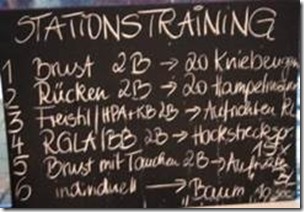 STATIONSTRAINING
1 Brust 2B → 20 Kniebeugen
2 Rücken 2B → 20 Hampelmänner
3 Freistil/HPA+KB 2B → Aufrichten RL
4 RGLA/BB 2B → Hockstrecksp.
15x
5 Brust mit Tauchen 2B →
6 individuell → "Baum" 10 sec